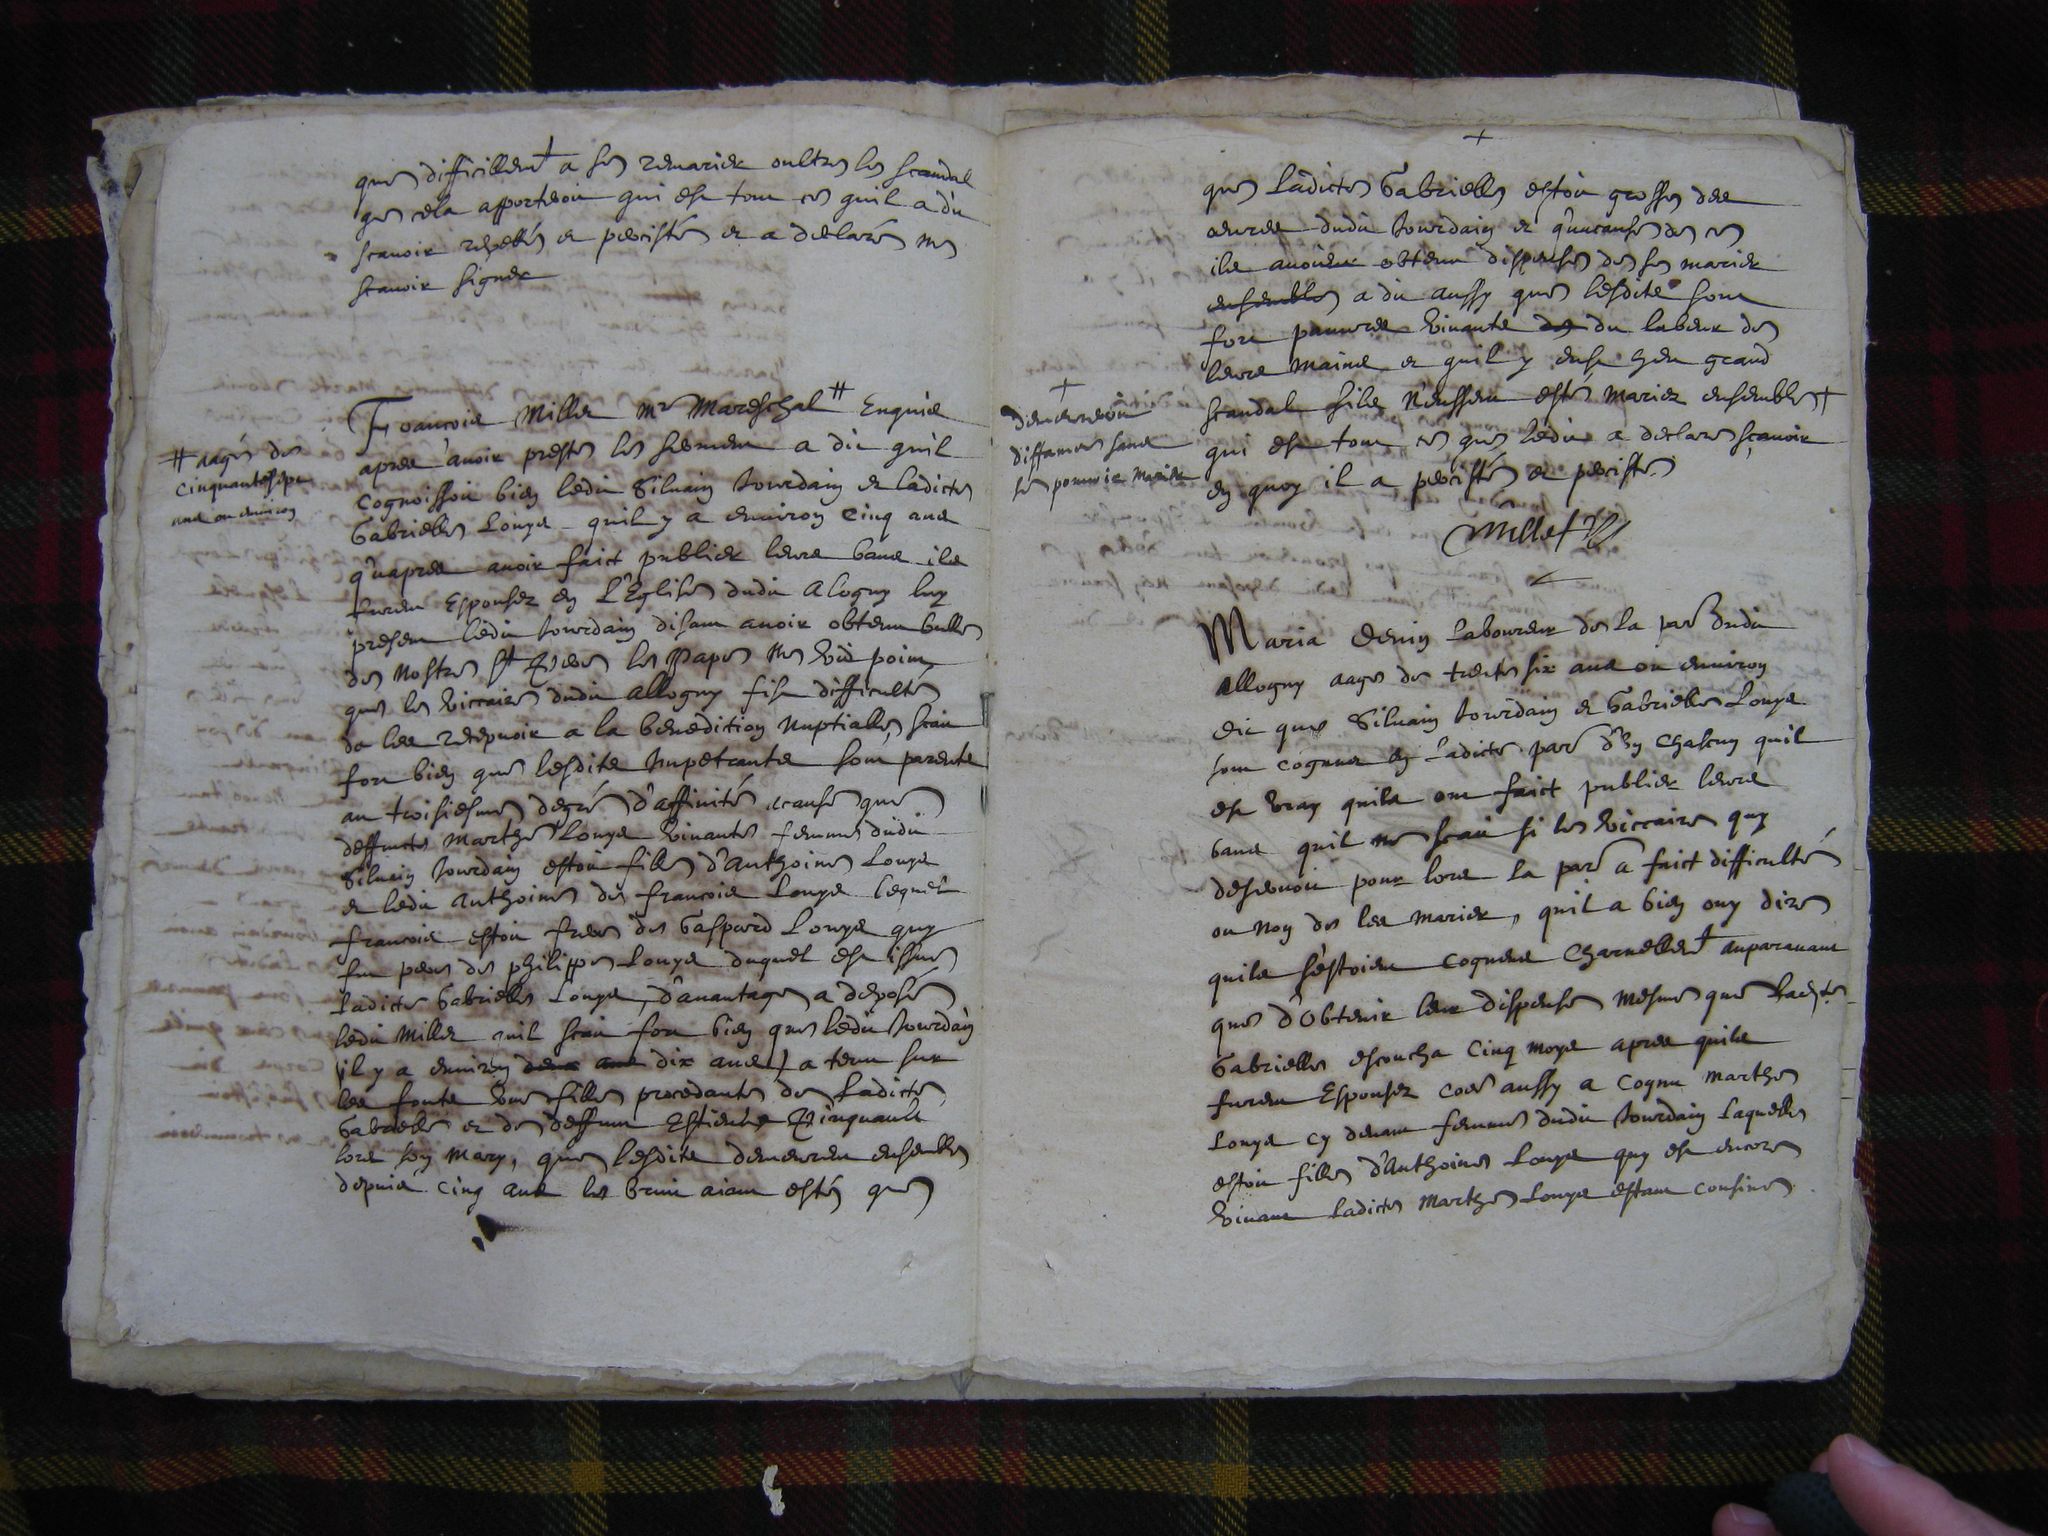 que difficillemt a se remarier oultre le scandal
que cela apporteroit qui est tout ce quil a dit
scavoir repetté et persisté et a declaré ne
scavoir signer
Francois Millet Mr Mareschal # Enquis
# aagé de
cinquante sept
ans ou environ
apres avoir presté le serment a dit quil
cognoissoit bien ledit Silvain Jourdain et ladicte
Gabrielle Louys quil y a environ cinq ans
quapres avoir faict publier leurs bans ils
furent Espousez en l'Eglise dudit Alogny luy
present ledit Jourdain disant avoir obtenu bulle
de Nostre St Pere le Pape ne vid point
que le viccaire dudit Allogny fist difficulté
de les recepvoir a la benediction Nuptialle, scait
fort bien que lesdits Impetrants sont parents
au troisiesme degré d'affinité acause que
deffuncte Marthe Louys vivante femme dudit
Silvain Jourdain estoit fille d'Anthoine Louys
et ledit Anthoine de francois Louys lequel
francois estoit frere de Gaspard Louys quy
fut pere de philippe Louys duquel est issue
ladicte Gabrielle Louys, d'avantage a deposé
ledit Millet quil scait fort bien que ledit Jourdain
(il y a environ deux ans dix ans) a tenu sur
les fonts une fille procedante de ladicte
Gabrielle et de deffunt Estienne
lors son mary, que lesdits demeurent ensemble
depuis cinq ans le bruit aiant esté que
+
que ladicte Gabrielle estoit grosse des
œuvres dudit Jourdain et qu'acause de ce
ils avoient obtenu dispense de se marier
ensemble a dit aussy que lesdits sont
fort pauvres vivants de du labeur de
leurs mains et quil y eust heu grand
scandal sils n'eussent esté mariez ensemble +
+
demeureroit
diffamee sans
se pouvoir marier
qui est tout ce que ledit a declaré scavoir
en quoy il a persisté et persiste.
Millet
Maria Denin laboureur de la parr dudit
Allogny aagé de trente six ans ou environ
dit que Silvain Jourdain et Gabrielle Louys
sont cognus en ladicte parr d'un chascun quil
est vray quils ont faict publier leurs
bans quil ne scait si le viccaire quy
deservoit pour lors la parr a faict difficulté
ou non de les marier, quil a bien ouy dire
quils s'estoient cognus charnellemt auparavant
que d'obtenir leur dispense mesme que ladicte
Gabrielle escoucha cinq moys apres quils
furent Espousez coe aussy a cognu Marthe
Louys cy devant femme dudit Jourdain laquelle
estoit fille d'Anthoine Louys quy est encore
vivant ladicte Marthe Louys estant cousine